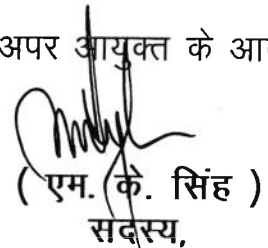 अपर आयुक्त के
( एम. के. सिंह )
सदस्य,